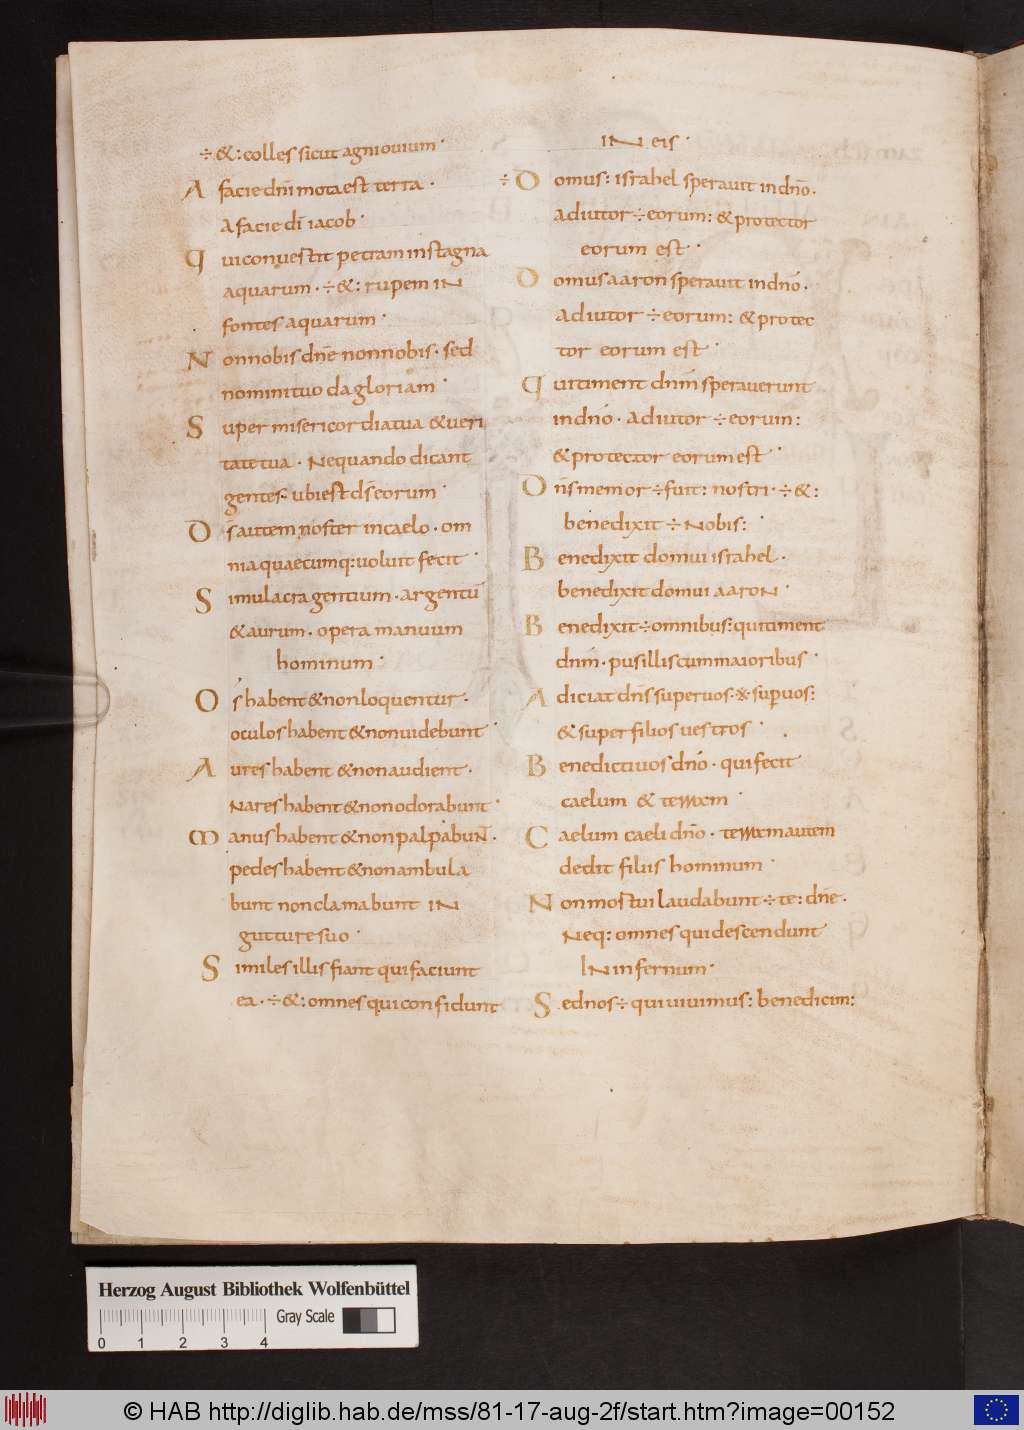 ÷ &: colles sicut agni ovium ·
A facie dn̄i mota est terra ·
A facie dī iacob ·
Qui convestit petram in stagna
aquarum · ÷ &: rupem IN
fontes aquarum ·
Non nobis dn̄e non nobis · sed
nomini tuo da gloriam ·
Super misericordia tua & veri
tate tua · Nequando dicant
gentes · ubi est ds̄ eorum ·
Ds̄ autem noster in caelo · om
nia quaecumq: voluit fecit ·
Simulacra gentium · argentū
& aurum · opera manuum
hominum ·
Os habent & non loquentur ·
oculos habent & non videbunt ·
Aures habent & non audient ·
Nares habent & non odorabunt ·
Manus habent & non palpabun̄ ·
pedes habent & non ambula
bunt non clamabunt IN
gutture suo ·
Similes illis fiant qui faciunt
ea · ÷ &: omnes qui confidunt
IN eis ·
÷ Domus: israhel speravit in dn̄o ·
Adiutor ÷ eorum: & protector
eorum est ·
Domus aaron speravit in dn̄o ·
Adiutor ÷ eorum: & protec
tor eorum est ·
Qui timent dn̄m speraverunt
in dn̄o · Adiutor ÷ eorum:
& protector eorum est ·
Dn̄s memor ÷ fuit: nostri · ÷ &:
benedixit ÷ Nobis: ·
Benedixit domui israhel ·
benedixit domui aaroN ·
Benedixit ÷ omnibus: qui timent
dn̄m · pusillis cum maioribus ·
Adiciat dn̄s super vos · ※ sup̄ vos:
& super filios vestros ·
Benedicti vos dn̄o · qui fecit
caelum & terram ·
Caelum caeli dn̄o · terram autem
dedit filiis hominum ·
Non mortui laudabunt ÷ te: dn̄e ·
Neq: omnes qui descendunt
IN infernum ·
Sed nos ÷ qui vivimus: benedicim:
Herzog August Bibliothek Wolfenbüttel
Gray Scale
0 1 2 3 4
© HAB http://diglib.hab.de/mss/81-17-aug-2f/start.htm?image=00152